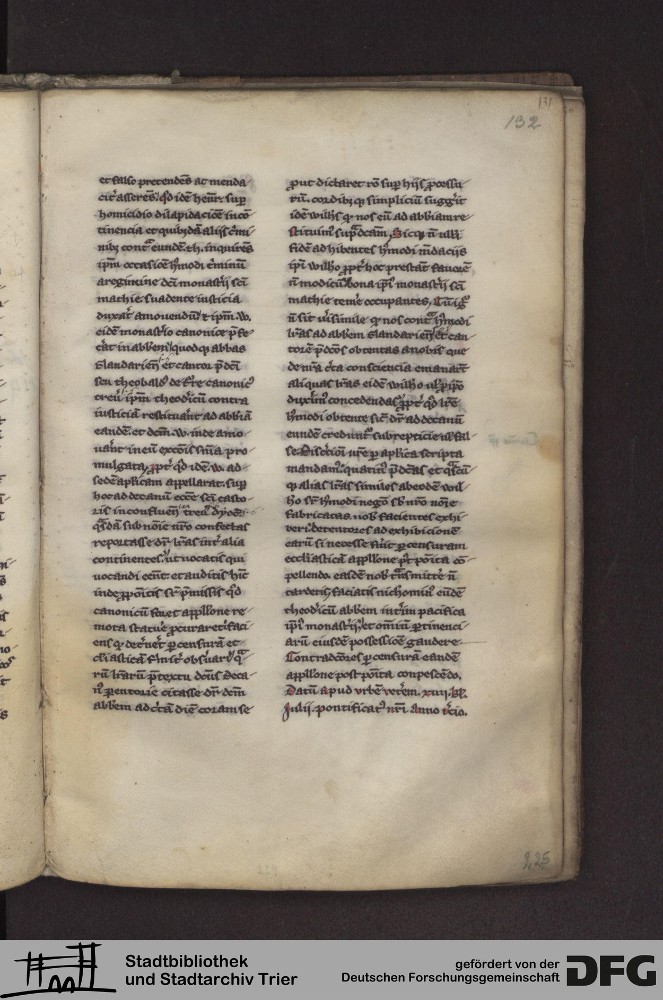 131
132
et falso pretendēs ac menda
cit᷑ asserēs. qđ idē henr. sup
homicidio dilapidacōe incō
tinencia et quibꝰdā alijs c̓mi
nibꝫ cont̾ eundē. th. inquirēs
ip̄m occasiōe hꝰmodi c̓minū
a regimine dc̄i monast̓ij sc̄i
mathie suadente iusticia
duxat̓ amouendū ⁊ ip̄m. W.
eidē monast̓io canonice p̄fe
c̓at in abbem. quodqꝫ abbas
et cantor p̄dc̄i
seu theobaldꝰ canonicꝰ
ip̄m. theodicū contra
iusticiā restituant̓ ad abbiā
eandē. et dc̄m. w. inde amo
uant̓ in eū excōis sn̄ia pro
mulgata. ꝓpt̓ qđ idē. w. ad
sedē aplicam appellarat. sup
hoc ad decanū ecc̄e sc̄i casto
ris in confluen̄ treu̓ dyoc̄.
qͣsdā sub noīe nr̄o confectas
reportasse dr̄ lr̄as int̓ alia
continentes. ut uocatis qui
uocandi eēnt et auditis hīc
inde ꝓpōitis sr̄ p̄missis qđ
canonicū foret appllone re
mota statue
 ꝑ censurā et
cl̄iasticā
rū lr̄arū p̄textu dc̄us deca
nꝰ ꝑemtorie citasse dr̄ dc̄m
abbem ad c̓tā diē coram se
ꝓut dictaret rō sup hijs ꝓcessu
rū. cordibꝫ qꝫ simpliciū sugg̓it
idē wilħs qꝫ nos eū ad abbiam re
stituimꝰ sup̾dcām. Sicqꝫ n̄ nulli
fidē adhibentes hꝰmodi mēdacijs
ip̄i wilħo ꝓpt̓ hoc prestāt fauorē
n̄ modicū. bona ip̄iꝰ monast̓ij sc̄i
mathie tem̓e occupantes. Cū igͥ
n̄ sit uisimile qꝫ nos cont̾ hꝰmodi
lr̄as ad abbem et can
torē p̄dc̄os obtentas a nobis que
de nr̄a c̓ta consciencia emanarūt
aliquas lr̄as eidē wilħo
duxim̓ concedendas. ꝓpt̓ qđ lr̄e
hꝰmodi obtente sic̄ dr̄ ad decanū
eundē credunt̓ subrepticie ul̓ fal
se. Discrōi ur̄e ꝑ aplica scripta
mandamꝰ. quatinꝰ p̄dc̄as et qͣscū
qꝫ alias lr̄as similes ab eodē wil
ħo sr̄ hꝰmodi negō sb nr̄o noīe
fabricatas. uob̄ facientes exhi
beri. detentores ad exhibicionē
earū si necesse fu̓it ꝑ censuram
eccl̄iasticā appllone pͥt pōita cō
pellendo. easdē nob̄ t̾nsmitt̓e n̄
tardetis. faciatis nichomiꝰ eūdē
theodicū abbem int̓im pacifica
ip̄iꝰ monast̓ij et omniū ꝑtinenci
arū eiusdē possessiōe gaudere
Contradcōres ꝑ censurā eandē
appllone post pōita conpescēdo.
Datū apud urbē vet̓em. xviij. kl̄.
Julij. pontificatꝰ nr̄i anno t̓cio.
225
Stadtbibliothek
und Stadtarchiv Trier
gefördert von der
Deutschen Forschungsgemeinschaft
DFG